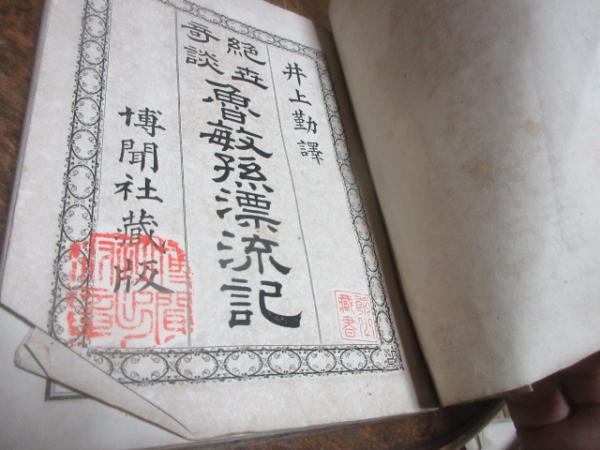 井上勤譯
絕世
奇談
魯敏孫漂流記
博聞社藏版
藏書